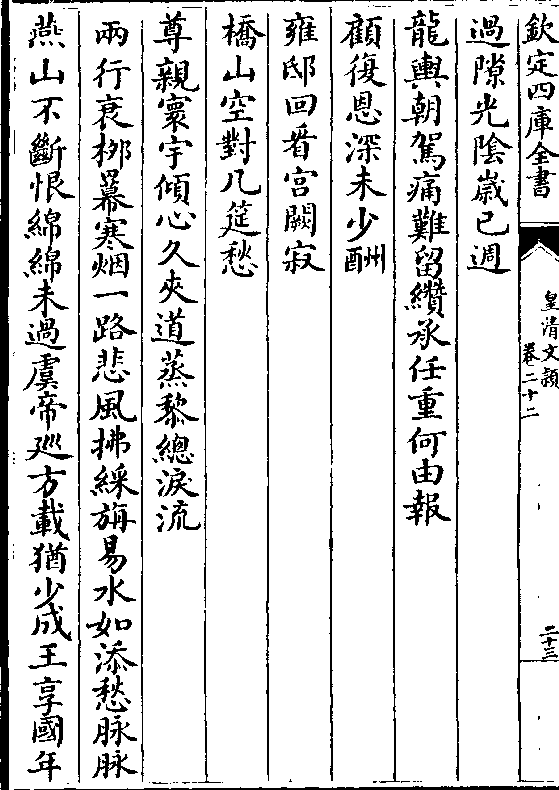 欽定四庫全書
皇清文穎
卷二十二
二十三
過隙光陰歲已週
龍輿朝駕痛難留纘承任重何由報
顧復恩深未少酬
雍邸回看宮闕寂
橋山空對几筵愁
尊親寰宇傾心久夾道蒸黎總淚流
兩行衰栁羃寒烟一路悲風拂綵旃易水如添愁脉脉
燕山不斷恨綿綿未過虞帝廵方載猶少成王享國年